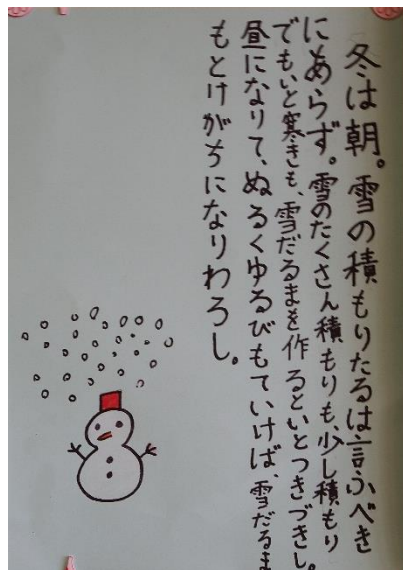 冬は朝。雪の積もりたるは言ふべき
にあらず。雪のたくさん積もりも、少し積もり
でもいと寒きも、雪だるまを作るといとつきづきし。
昼になりて、ぬるくゆるびもていけば、雪だるま
もとけがちになりわろし。